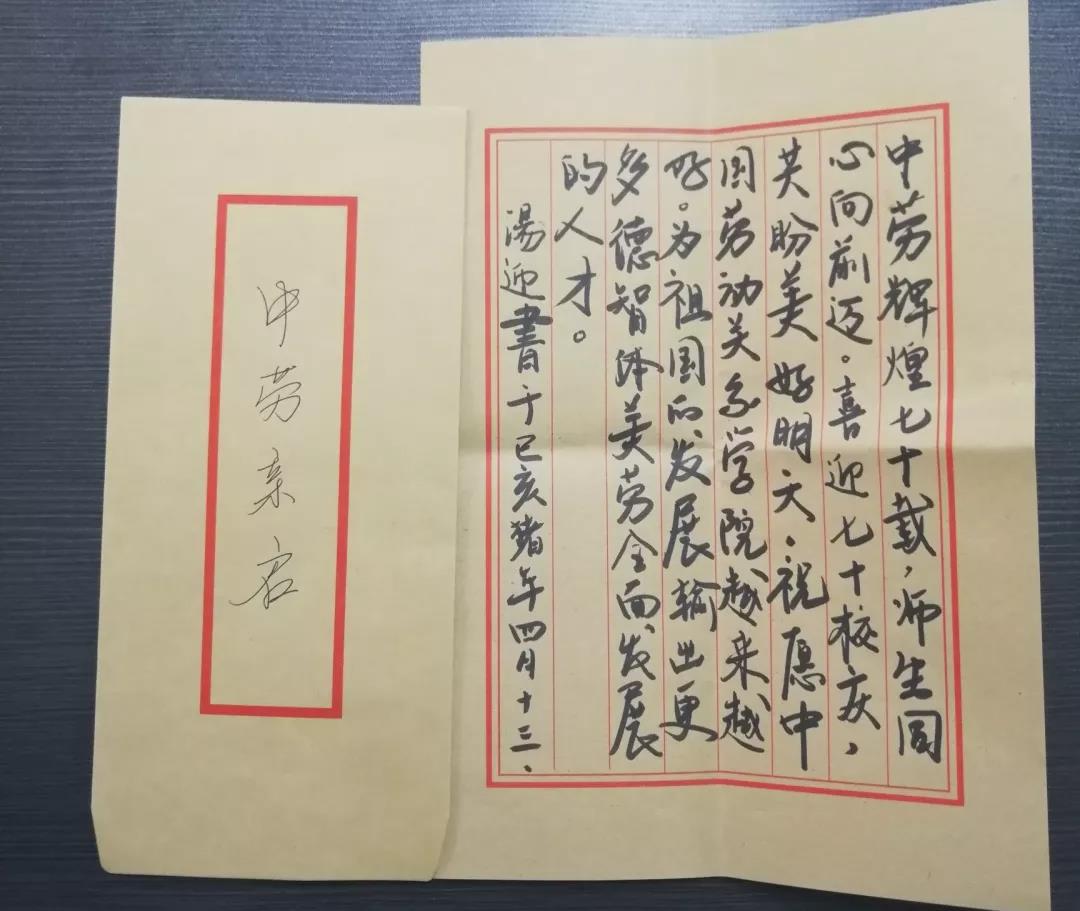 中劳亲启
中劳辉煌七十载，师生同
心向前迈。喜迎七十校庆，
共盼美好明天、祝愿中
国劳动关系学院越来越
好。为祖国的发展输出更
多德智体美劳全面发展
的人才。
湯迎書于已亥猪年四月十三、